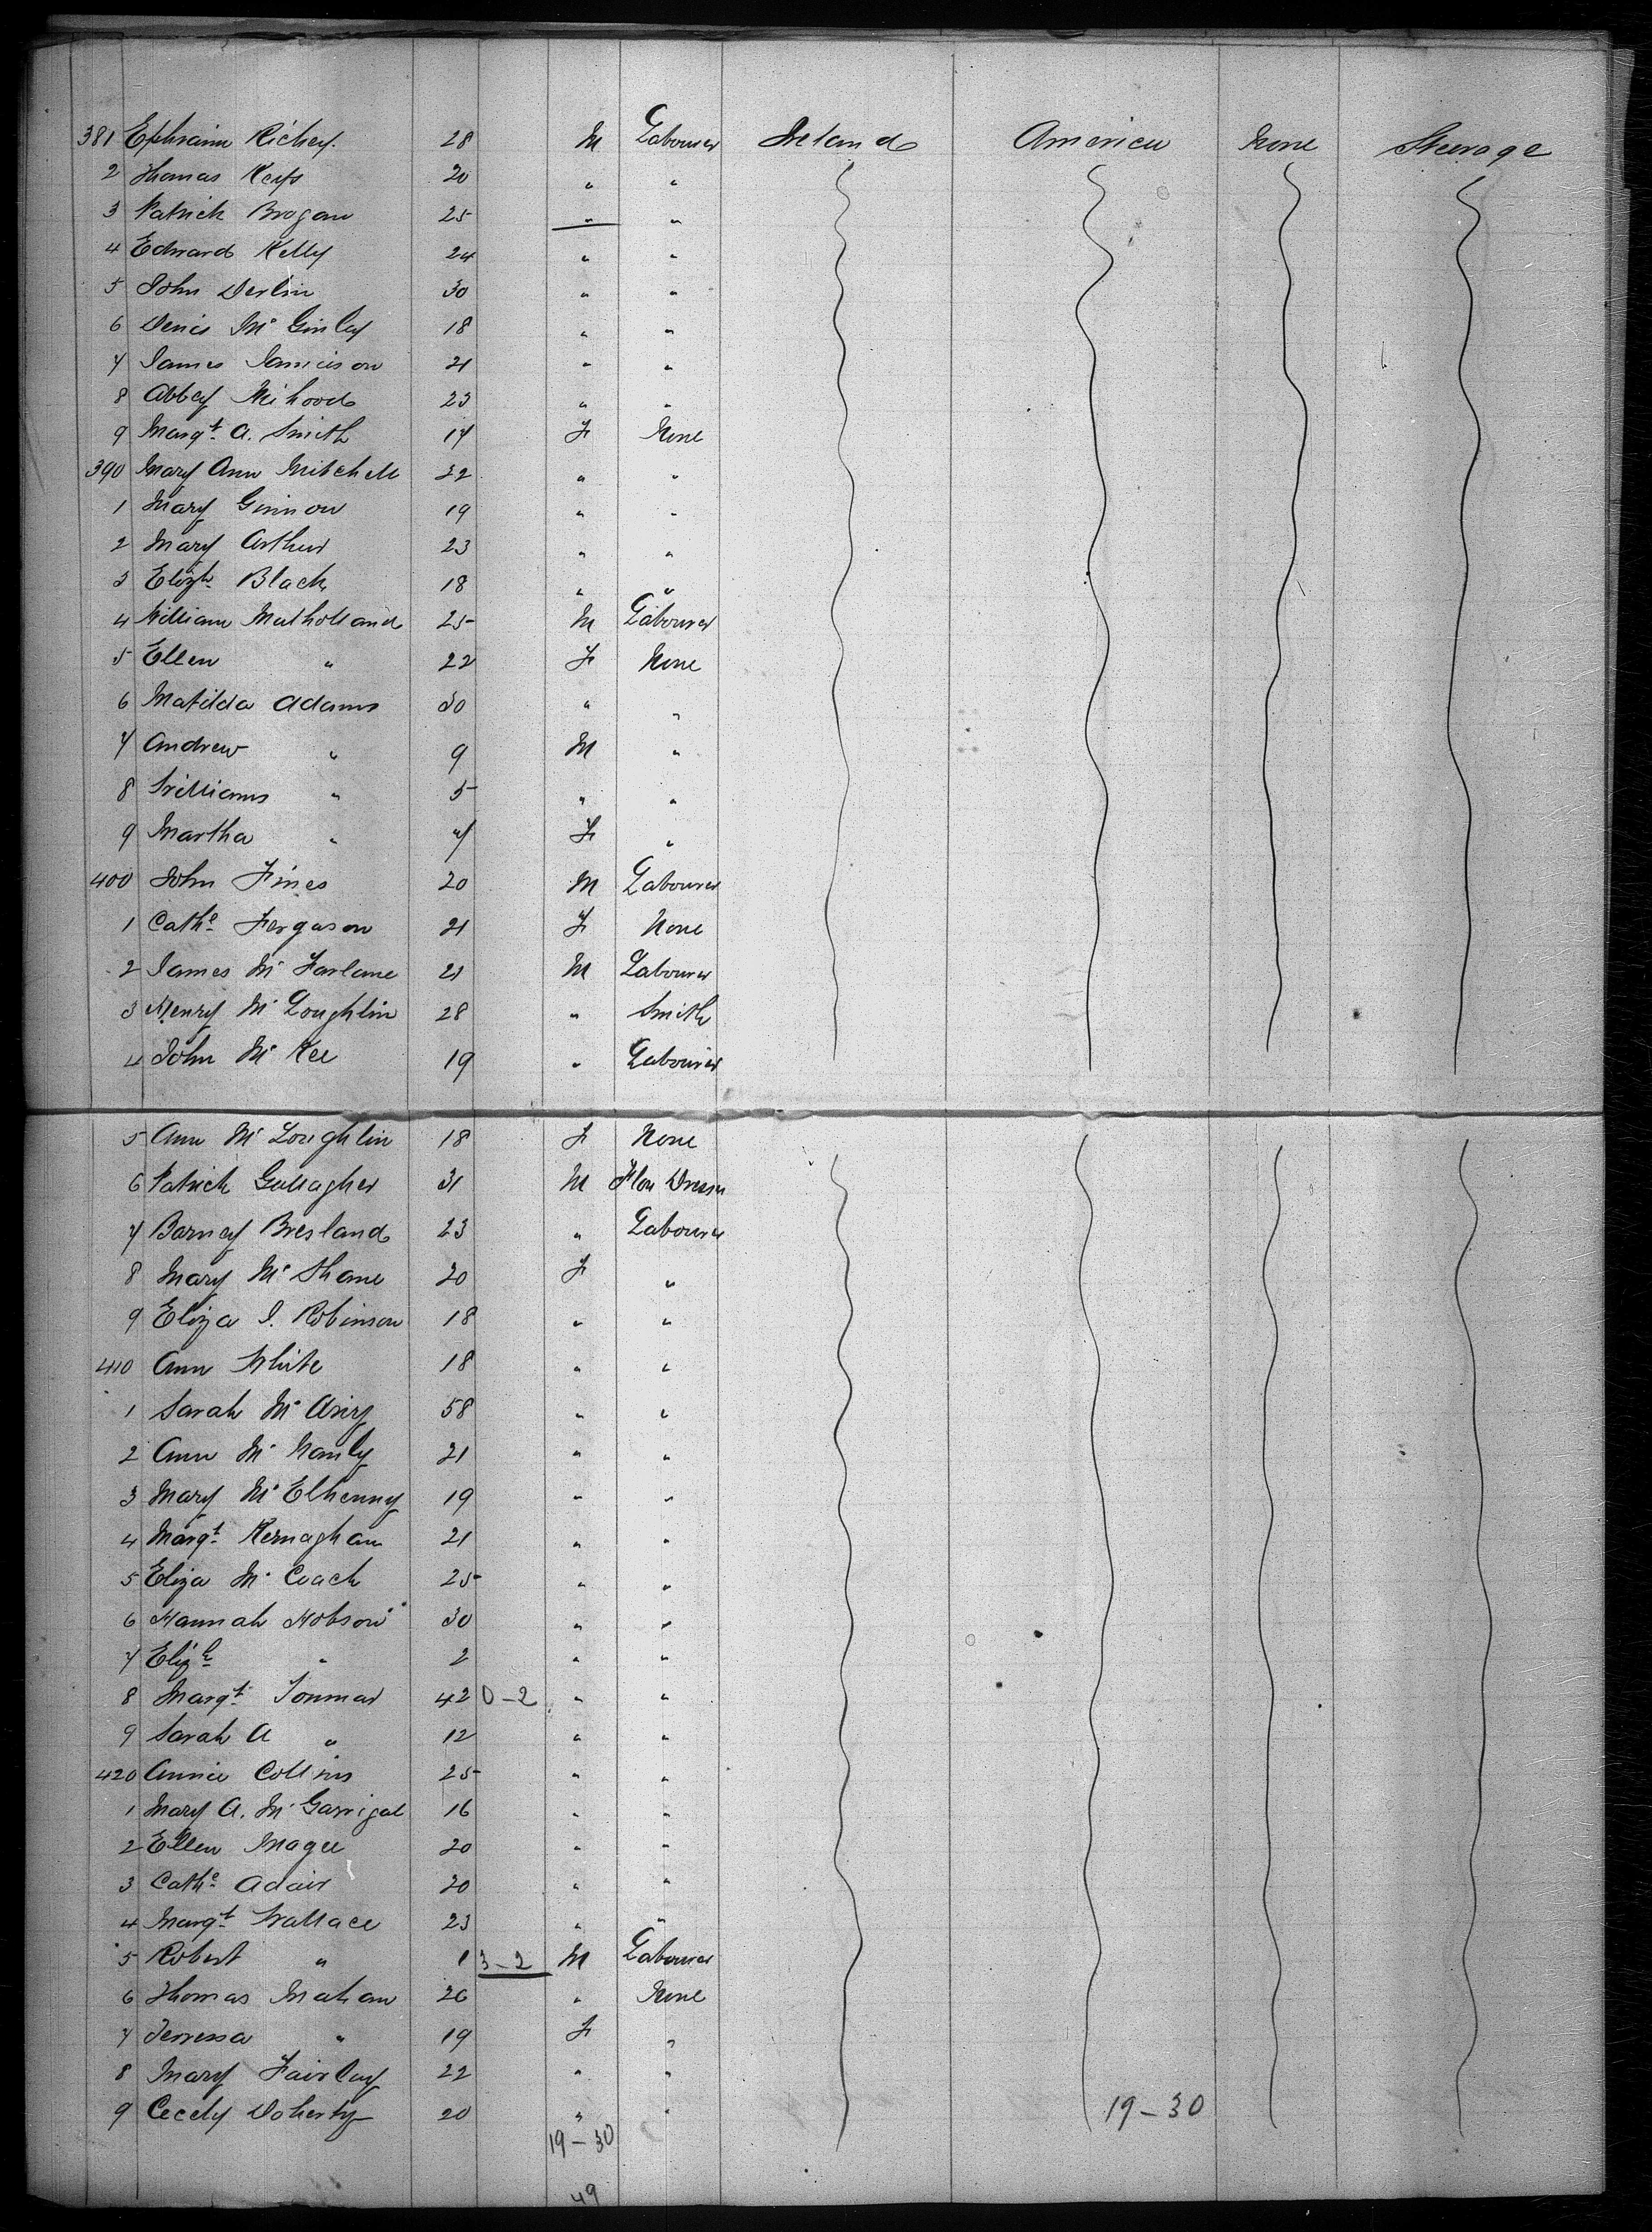 381 Ephraim Richey. 28 M Labourer Ireland America None Steerage
2 Thomas Keys 20 " "
3 Patrick Brogan 25 " "
4 Edward Kelly 24 " "
5 John Devlin 30 " "
6 Denis Mc Ginley 18 " "
7 James Jamieson 21 " "
8 Abbey 23 " "
9 Margt. A. Smith 17 F None
390 Mary Ann Mitchell 22 " "
1 Mary Ginnon 19 " "
2 Mary Arthur 23 " "
3 Elizh Black 18 " "
4 William Mulholland 25 M Labourer
5 Ellen " 22 F None
6 Matilda Adams 30 " "
7 Andrew " 9 M "
8 Williams " 5 " "
9 Martha " 7 F "
400 John Fines 20 M Labourer
1 Cathe Ferguson 21 F None
2 James Mc Farlane 21 M Labourer
3 Henry Mc Loughlin 28 " Smith
4 John Mc Kee 19 " Labourer
5 Ann Mc Loughlin 18 F None
6 Patrick Gallagher 31 M Dresser
7 Barney Bresland 23 " Labourer
8 Mary Mc Shane 20 F "
9 Eliza J. Robinson 18 " "
410 Ann White 18 " "
1 Sarah Mc 58 " "
2 Ann Mc 21 " "
3 Mary Mc Elhenny 19 " "
4 Margt Kernaghan 21 " "
5 Eliza Mc Coach 25 " "
6 Hannah Hobson 30 " "
7 Elizh " 2 " "
8 Margt 42 0-2 " "
9 Sarah A " 12 " "
420 Annie Collins 25 " "
1 Mary A. Mc Garrigal 16 " "
2 Ellen Magee 20 " "
3 Cathe Adair 20 " "
4 Margt Wallace 23 " "
5 Robert " 1 3-2 M Labourer
6 Thomas Mahan 26 " None
7 Terressa " 19 F "
8 Mary Fairley 22 " "
9 Cecely Doherty 20 " " 19-30
19-30
49